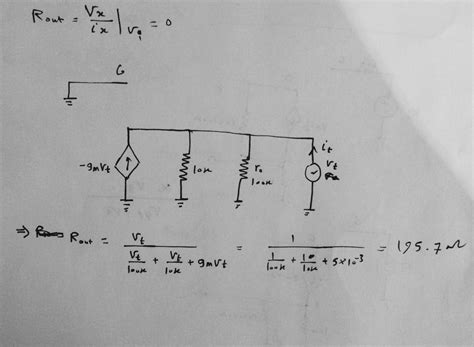 Rout = Vx / ix | Vg = 0
G
-gmVt
10K
ro
100K
it
Vt
⇒ Rout = Vt / (Vt/100K + Vt/10K + gmVt) = 1 / (1/100K + 10/10K + 5×10^-3) = 195.7 Ω